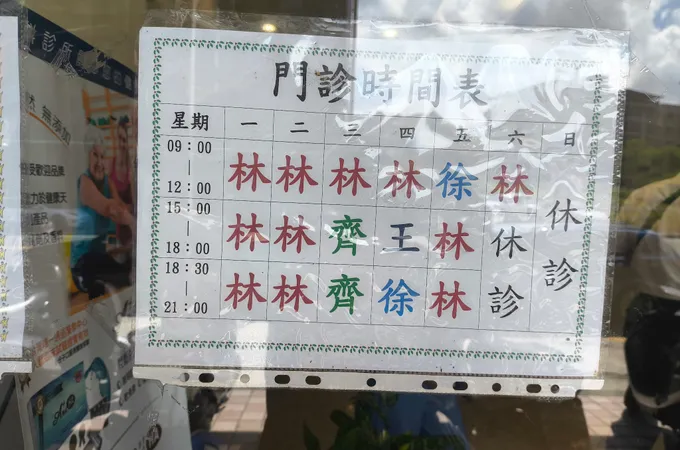 門診時間表
星期 一 二 三 四 五 六 日
09:00 | 12:00 林 林 林 林 徐 林
15:00 | 18:00 林 林 齊 王 林 休診
18:30 | 21:00 林 林 齊 徐 林
休診
無添加